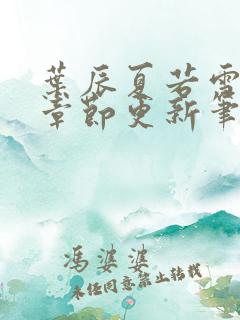 葉辰夏若雪
章節更新筆
馮婆婆
未经同意禁止转载